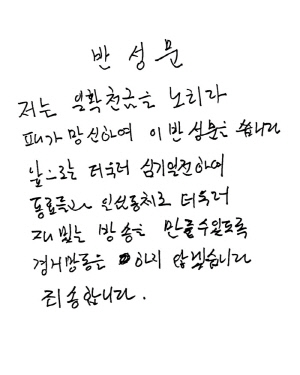 반성문
저는 일확천금을 노리다
패가망신하여 이 반성문을 씁니다
앞으로는 더욱더 심기일전하여
동료들과 일심동체로 더욱더
재밌는 방송을 만들수있도록
경거망동을 하지 않겠습니다
죄송합니다.